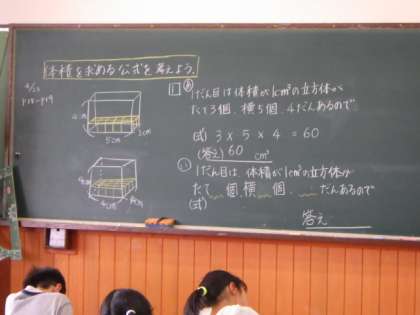 体積を求める公式を考えよう。
P18~P19
4cm
5cm
3cm
4cm
4cm
1
あ
1だん目は体積が1cm³の立方体が
たて3個、横5個、4だんあるので
(式) 3×5×4=60
(答え) 60 cm³
い
1だん目は、体積が1cm³の立方体が
たて 個、横 個、 だんあるので
(式)
答え